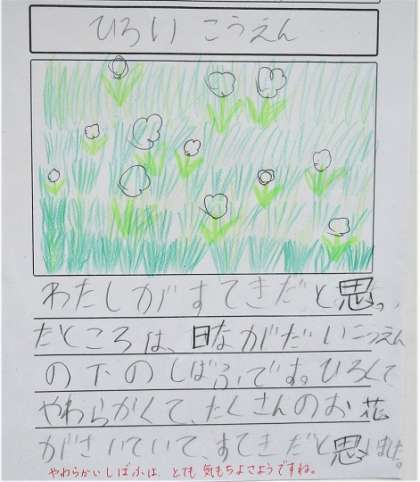 ひろい こうえん
わたしがすてきだと思っ
たところは、日ながだいこうえん
の下のしばふです。ひろくて
やわらかくて、たくさんのお花
がさいていて、すてきだと思いました。
やわらかいしばふは、とても気もちよさそうですね。